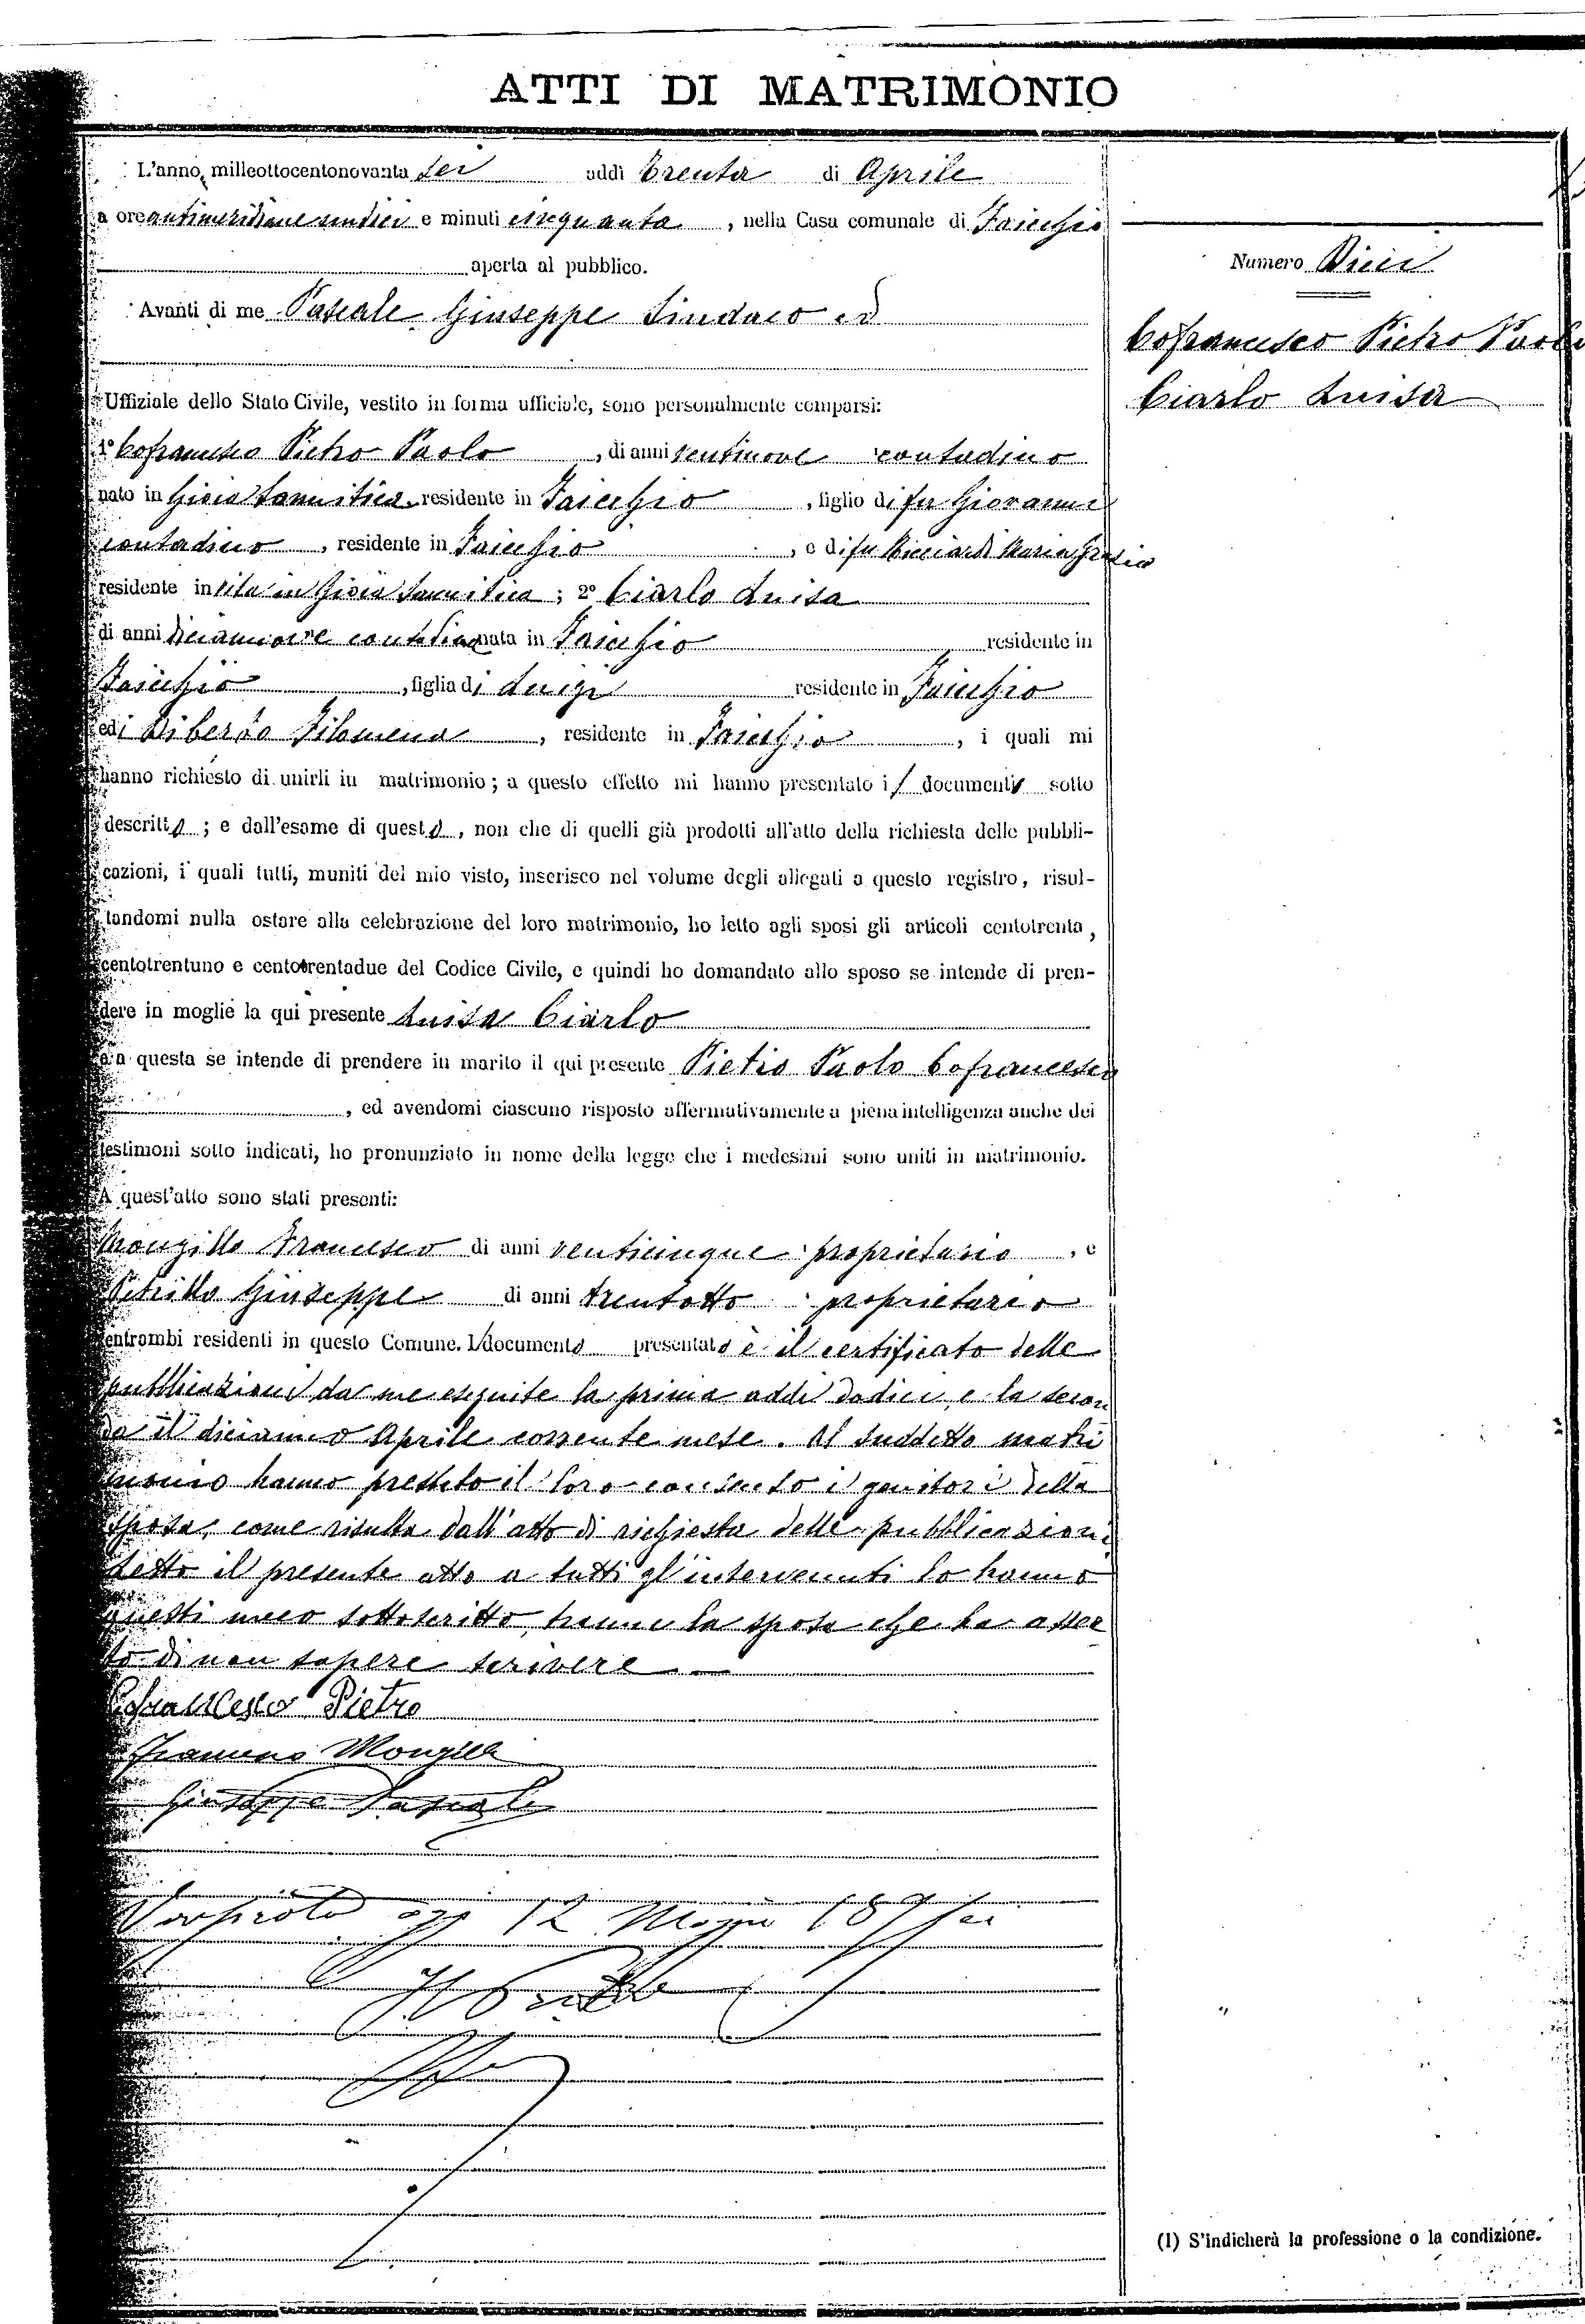 ATTI DI MATRIMONIO
L'anno, milleottocentonovanta sei addì trenta di Aprile
a ore antimeridiane undici e minuti cinquanta, nella Casa comunale di Faicchio
aperta al pubblico.
Numero Dieci
Avanti di me Pascale Giuseppe Sindaco ed
Cofrancesco Pietro Paolo
Ciarlo Luisa
Uffiziale dello Stato Civile, vestito in forma ufficiale, sono personalmente comparsi:
1º Cofrancesco Pietro Paolo, di anni ventinove contadino
nato in Gioia Sannitica residente in Faicchio, figlio di fu Giovanni
contadino, residente in Faicchio, e di fu Ricciardi Maria Grazia
residente in vita in Gioia Sannitica; 2º Ciarlo Luisa
di anni diciannove contadina nata in Faicchio residente in
Faicchio, figlia di Luigi residente in Faicchio
e di Di Filomena, residente in Faicchio, i quali mi
hanno richiesto di unirli in matrimonio; a questo effetto mi hanno presentato il documento sotto
descritto; e dall'esame di questo, non che di quelli già prodotti all'atto della richiesta delle pubbli-
cazioni, i quali tutti, muniti del mio visto, inserisco nel volume degli allegati a questo registro, risul-
tandomi nulla ostare alla celebrazione del loro matrimonio, ho letto agli sposi gli articoli centotrenta,
centotrentuno e centotrentadue del Codice Civile, e quindi ho domandato allo sposo se intende di pren-
dere in moglie la qui presente Luisa Ciarlo
e a questa se intende di prendere in marito il qui presente Pietro Paolo Cofrancesco
, ed avendomi ciascuno risposto affermativamente a piena intelligenza anche dei
testimoni sotto indicati, ho pronunziato in nome della legge che i medesimi sono uniti in matrimonio.
A quest'atto sono stati presenti:
Mongillo Francesco di anni venticinque proprietario, e
Petrillo Giuseppe di anni trentotto proprietario
entrambi residenti in questo Comune. Il documento presentato è il certificato delle
pubblicazioni da me eseguite la prima addì dodici, e la secon
da il diciannove Aprile corrente mese. Al suddetto matri
monio hanno prestato il loro consenso i genitori della
sposa, come risulta dall'atto di richiesta delle pubblicazioni
Letto il presente atto a tutti gl'intervenuti lo hanno
questi meco sottoscritto, tranne la sposa che ha asser
to di non sapere scrivere.
Cofrancesco Pietro
Francesco Mongillo
Giuseppe Pascale
oggi 12 Maggio 189sei
(1) S'indicherà la professione o la condizione.